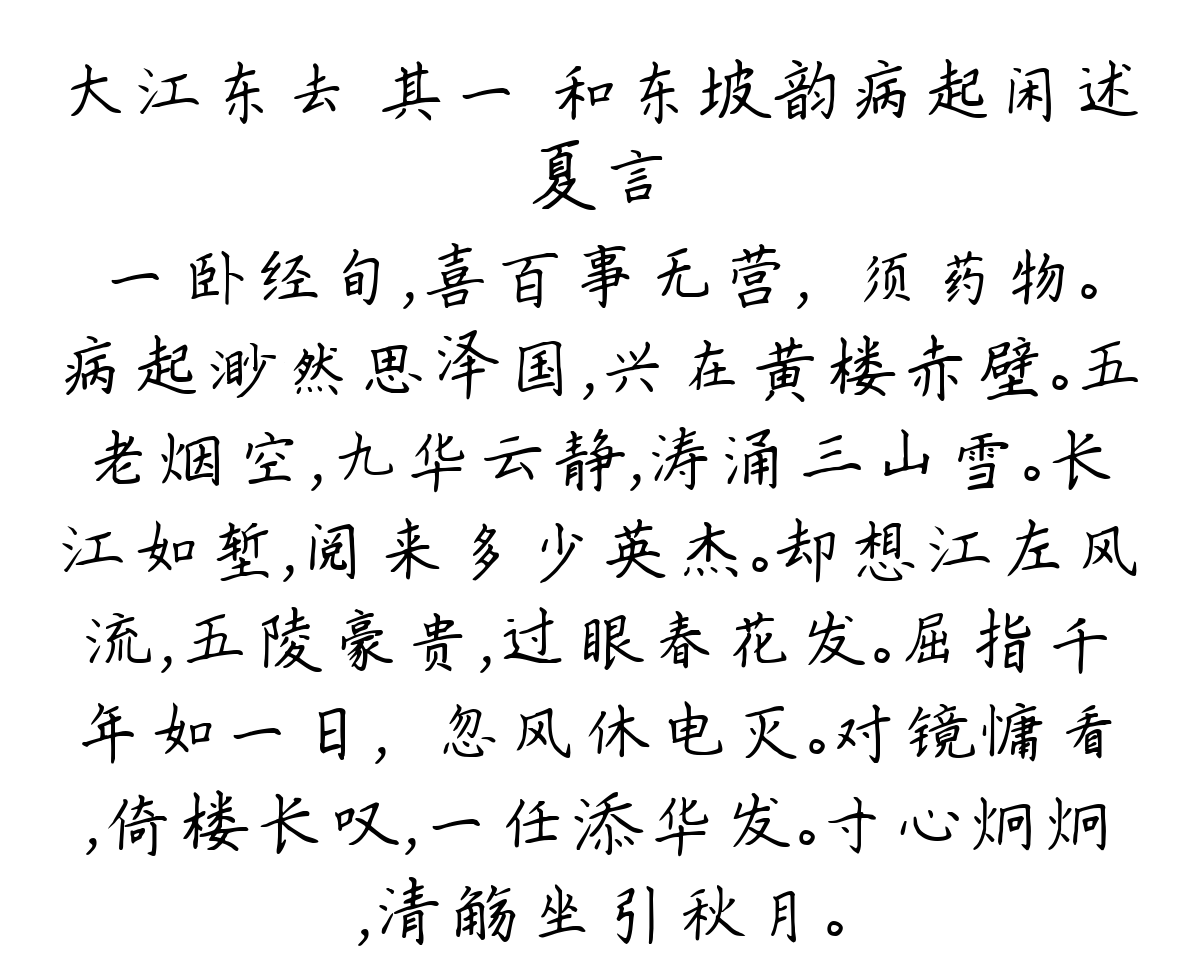 大江东去 其一 和东坡韵病起闲述
夏言
一卧经旬,喜百事无营, 须药物。
病起渺然思泽国,兴在黄楼赤壁。五
老烟空,九华云静,涛涌三山雪。长
江如堑,阅来多少英杰。却想江左风
流,五陵豪贵,过眼春花发。屈指千
年如一日, 忽风休电灭。对镜慵看
,倚楼长叹,一任添华发。寸心炯炯
,清觞坐引秋月。